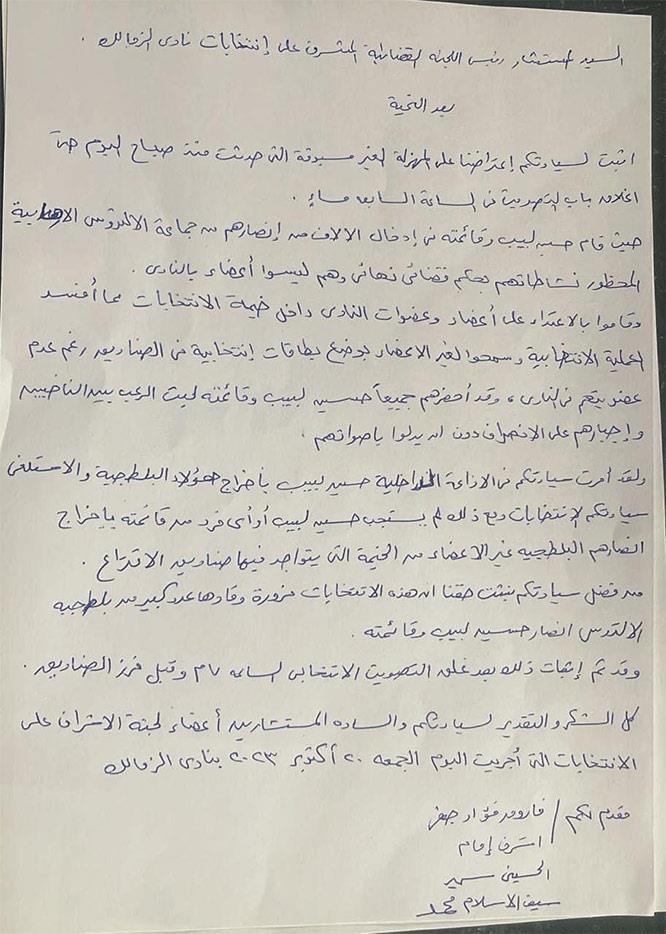 السيد المستشار رئيس اللجنة القضائية المشرف على إنتخابات نادى الزمالك .
بعد التحية
اثبت لسيادتكم إعتراضنا على المهزلة الغير مسبوقة التى حدثت منذ صباح اليوم حتى
اغلاق باب التصويت فى الساعة السابعه مساءً .
حيث قام حسين لبيب وقائمته فى إدخال الالاف من إنصارهم من جماعة الالتدرس الارهابية
المحظور نشاطاتهم بحكم قضائى نهائى وهم ليسوا أعضاء بالنادى .
وقاموا بالاعتداء على أعضاء وعضوات النادى داخل خيمة الانتخابات مما أفسد
العملية الانتخابية وسمحوا لغير الاعضاء بوضع بطاقات إنتخابية فى الصناديق رغم عدم
عضويتهم فى النادى ، وقد أحضرهم جميعاً حسين لبيب وقائمته لبث الرعب بين الناخبين
وإجبارهم على الانصراف دون ان يدلوا باصواتهم .
ولقد أمرت سيادتكم فى الاذاعة الداخلية حسين لبيب بأخراج هؤلاء البلطجية والا ستلغى
سيادتكم الإنتخابات ومع ذلك لم يستجب حسين لبيب أو أى فرد من قائمته بإخراج
انصارهم البلطجيه غير الاعضاء من الخيمة التى يتواجد فيها صناديق الاقتراع .
من فضل سيادتكم نثبت حقنا ان هذه الانتخابات مزورة وقادها عدد كبير من بلطجيه
الالتدرس انصار حسين لبيب وقائمته .
وقد تم إثبات ذلك بعد غلق التصويت الانتخابى الساعه ٧ م وقبل فرز الصناديق .
كل الشكر والتقدير لسيادتكم والساده المستشارين أعضاء لجنة الاشراف على
الانتخابات التى أجريت اليوم الجمعه ٢٠ أكتوبر ٢٠٢٣ بنادى الزمالك
مقدم لكم / فاروق فؤاد جعفر
اشرف إمام
الحسينى سمير
سيف الاسلام محمد